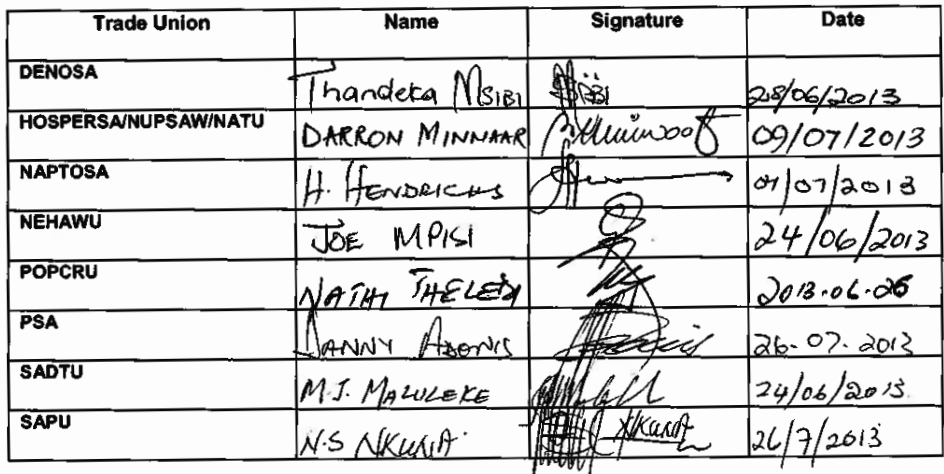 Trade Union Name Signature Date
DENOSA Thandeka Msibi 28/06/2013
HOSPERSA/NUPSAW/NATU DARRON MINNAAR 09/07/2013
NAPTOSA H. HENDRICKS /07/2013
NEHAWU JOE MPISI 24/06/2013
POPCRU NATHI THELEDI 2013.06.26
PSA DANNY ADONIS 26.07.2013
SADTU M.J. MALULEKE 24/06/2013
SAPU N.S NKUNA 26/7/2013